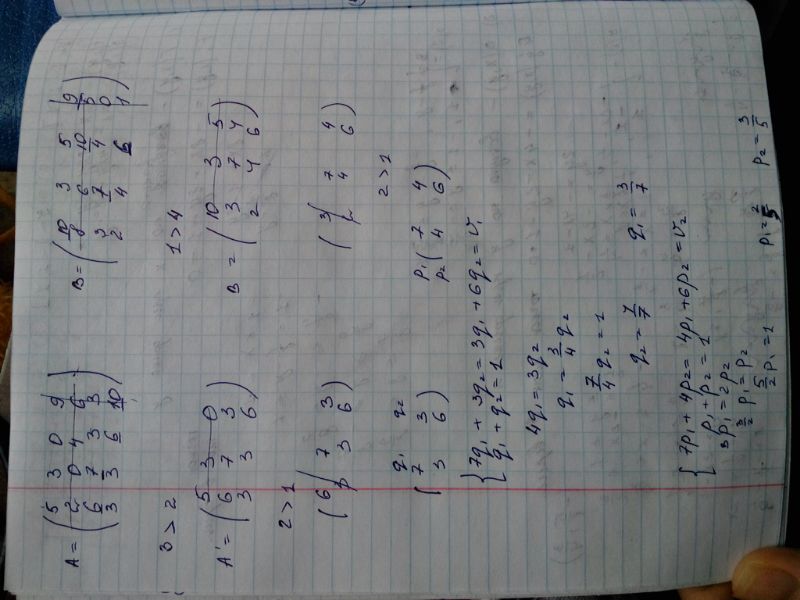 A = ( 5 3 0 9
2 0 4 6
6 7 3 3
3 3 6 10 )
B = ( 10 3 5 9
8 6 10 5
3 7 4 0
2 4 6 1 )
3 > 2
1 > 4
A' = ( 5 3 0
6 7 3
3 3 6 )
B = ( 10 3 5
3 7 4
2 4 6 )
2 > 1
( 6 7 3
3 3 6 )
( 3 7 4
2 4 6 )
2 > 1
q₁ q₂
( 7 3
3 6 )
p₁ ( 7 4
p₂ 4 6 )
{ 7q₁ + 3q₂ = 3q₁ + 6q₂ = v₁
q₁ + q₂ = 1
4q₁ = 3q₂
q₁ = 3/4 q₂
7/4 q₂ = 1
q₂ = 4/7 q₁ = 3/7
{ 7p₁ + 4p₂ = 4p₁ + 6p₂ = v₂
p₁ + p₂ = 1
3p₁ = 2p₂
3/2 p₁ = p₂
5/2 p₁ = 1 p₁ = 2/5 p₂ = 3/5